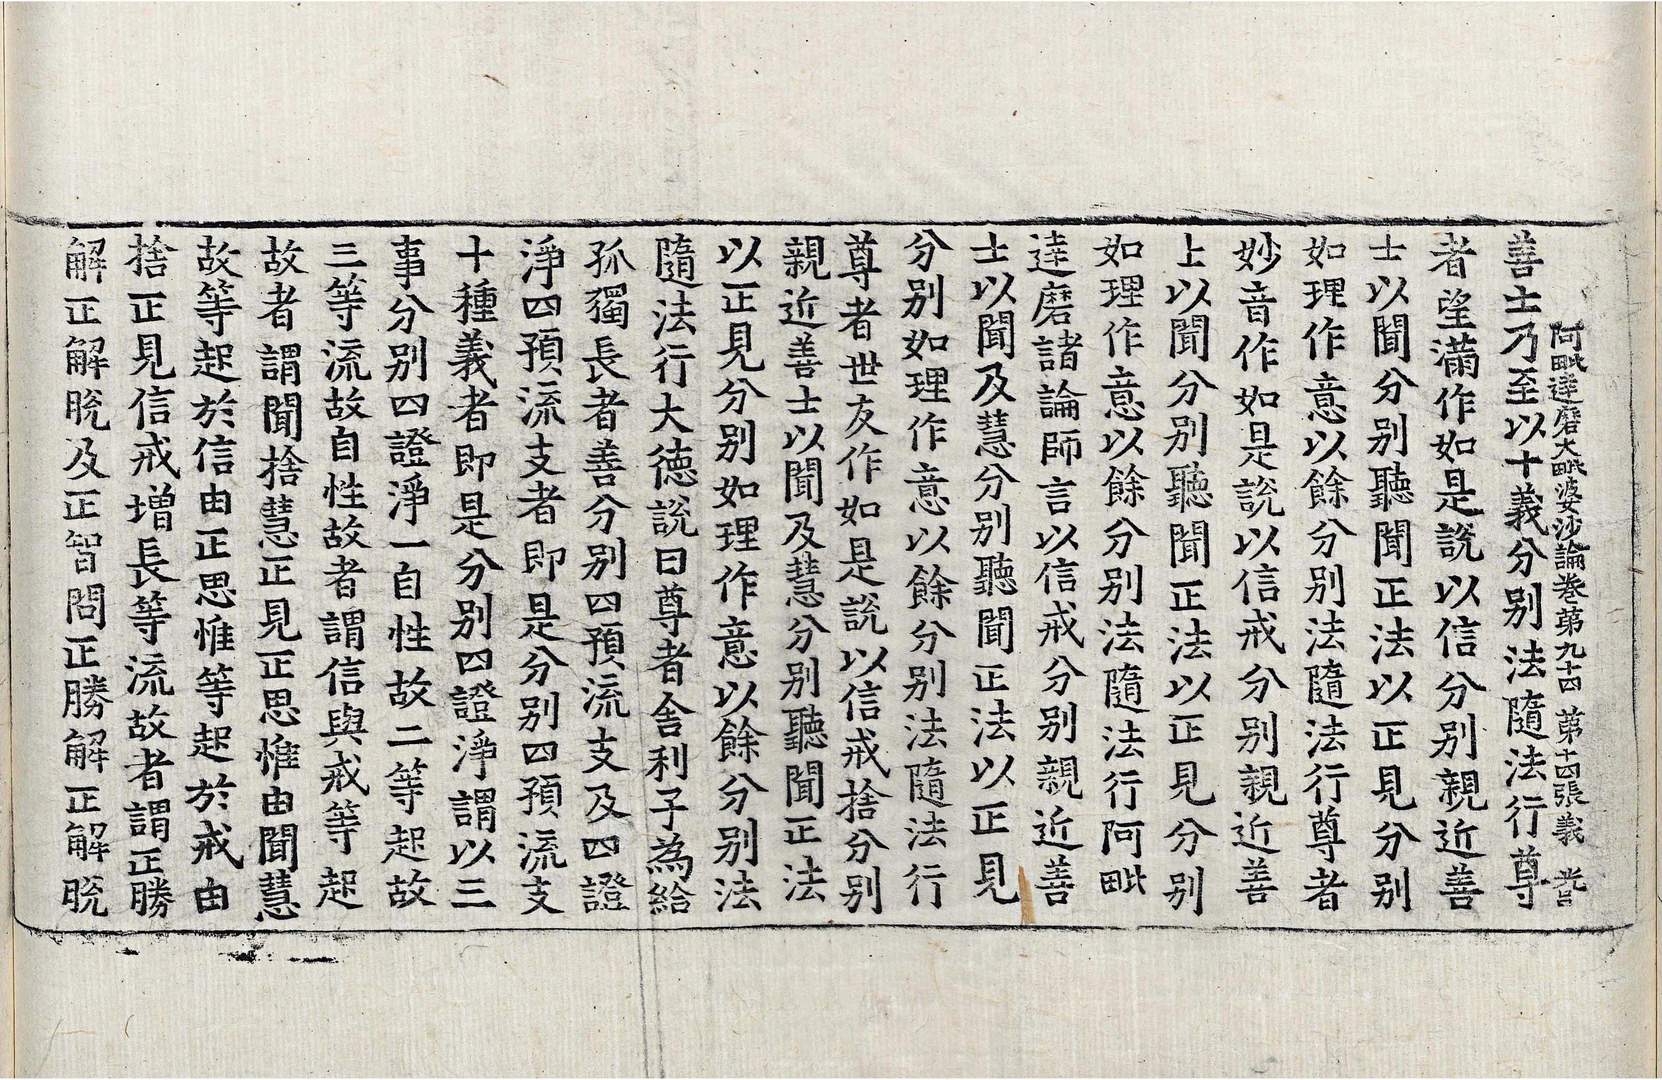 阿毗達磨大毗婆沙論卷第九十四 第十四張 義
善士乃至以十義分別法隨法行尊
者望滿作如是說以信分別親近善
士以聞分別聽聞正法以正見分別
如理作意以餘分別法隨法行尊者
妙音作如是說以信戒分別親近善
士以聞分別聽聞正法以正見分別
如理作意以餘分別法隨法行阿毗
達磨諸論師言以信戒分別親近善
士以聞及慧分別聽聞正法以正見
分別如理作意以餘分別法隨法行
尊者世友作如是說以信戒捨分別
親近善士以聞及慧分別聽聞正法
以正見分別如理作意以餘分別法
隨法行大德說曰尊者舍利子為給
孤獨長者善分別四預流支及四證
淨四預流支者即是分別四預流支
十種義者即是分別四證淨謂以三
事分別四證淨一自性故二等起故
三等流故自性故者謂信與戒等起
故者謂聞捨慧正見正思惟由聞慧
故等起於信由正思惟等起於戒由
捨正見信戒增長等流故者謂正勝
解正解脫及正智問正勝解正解脫